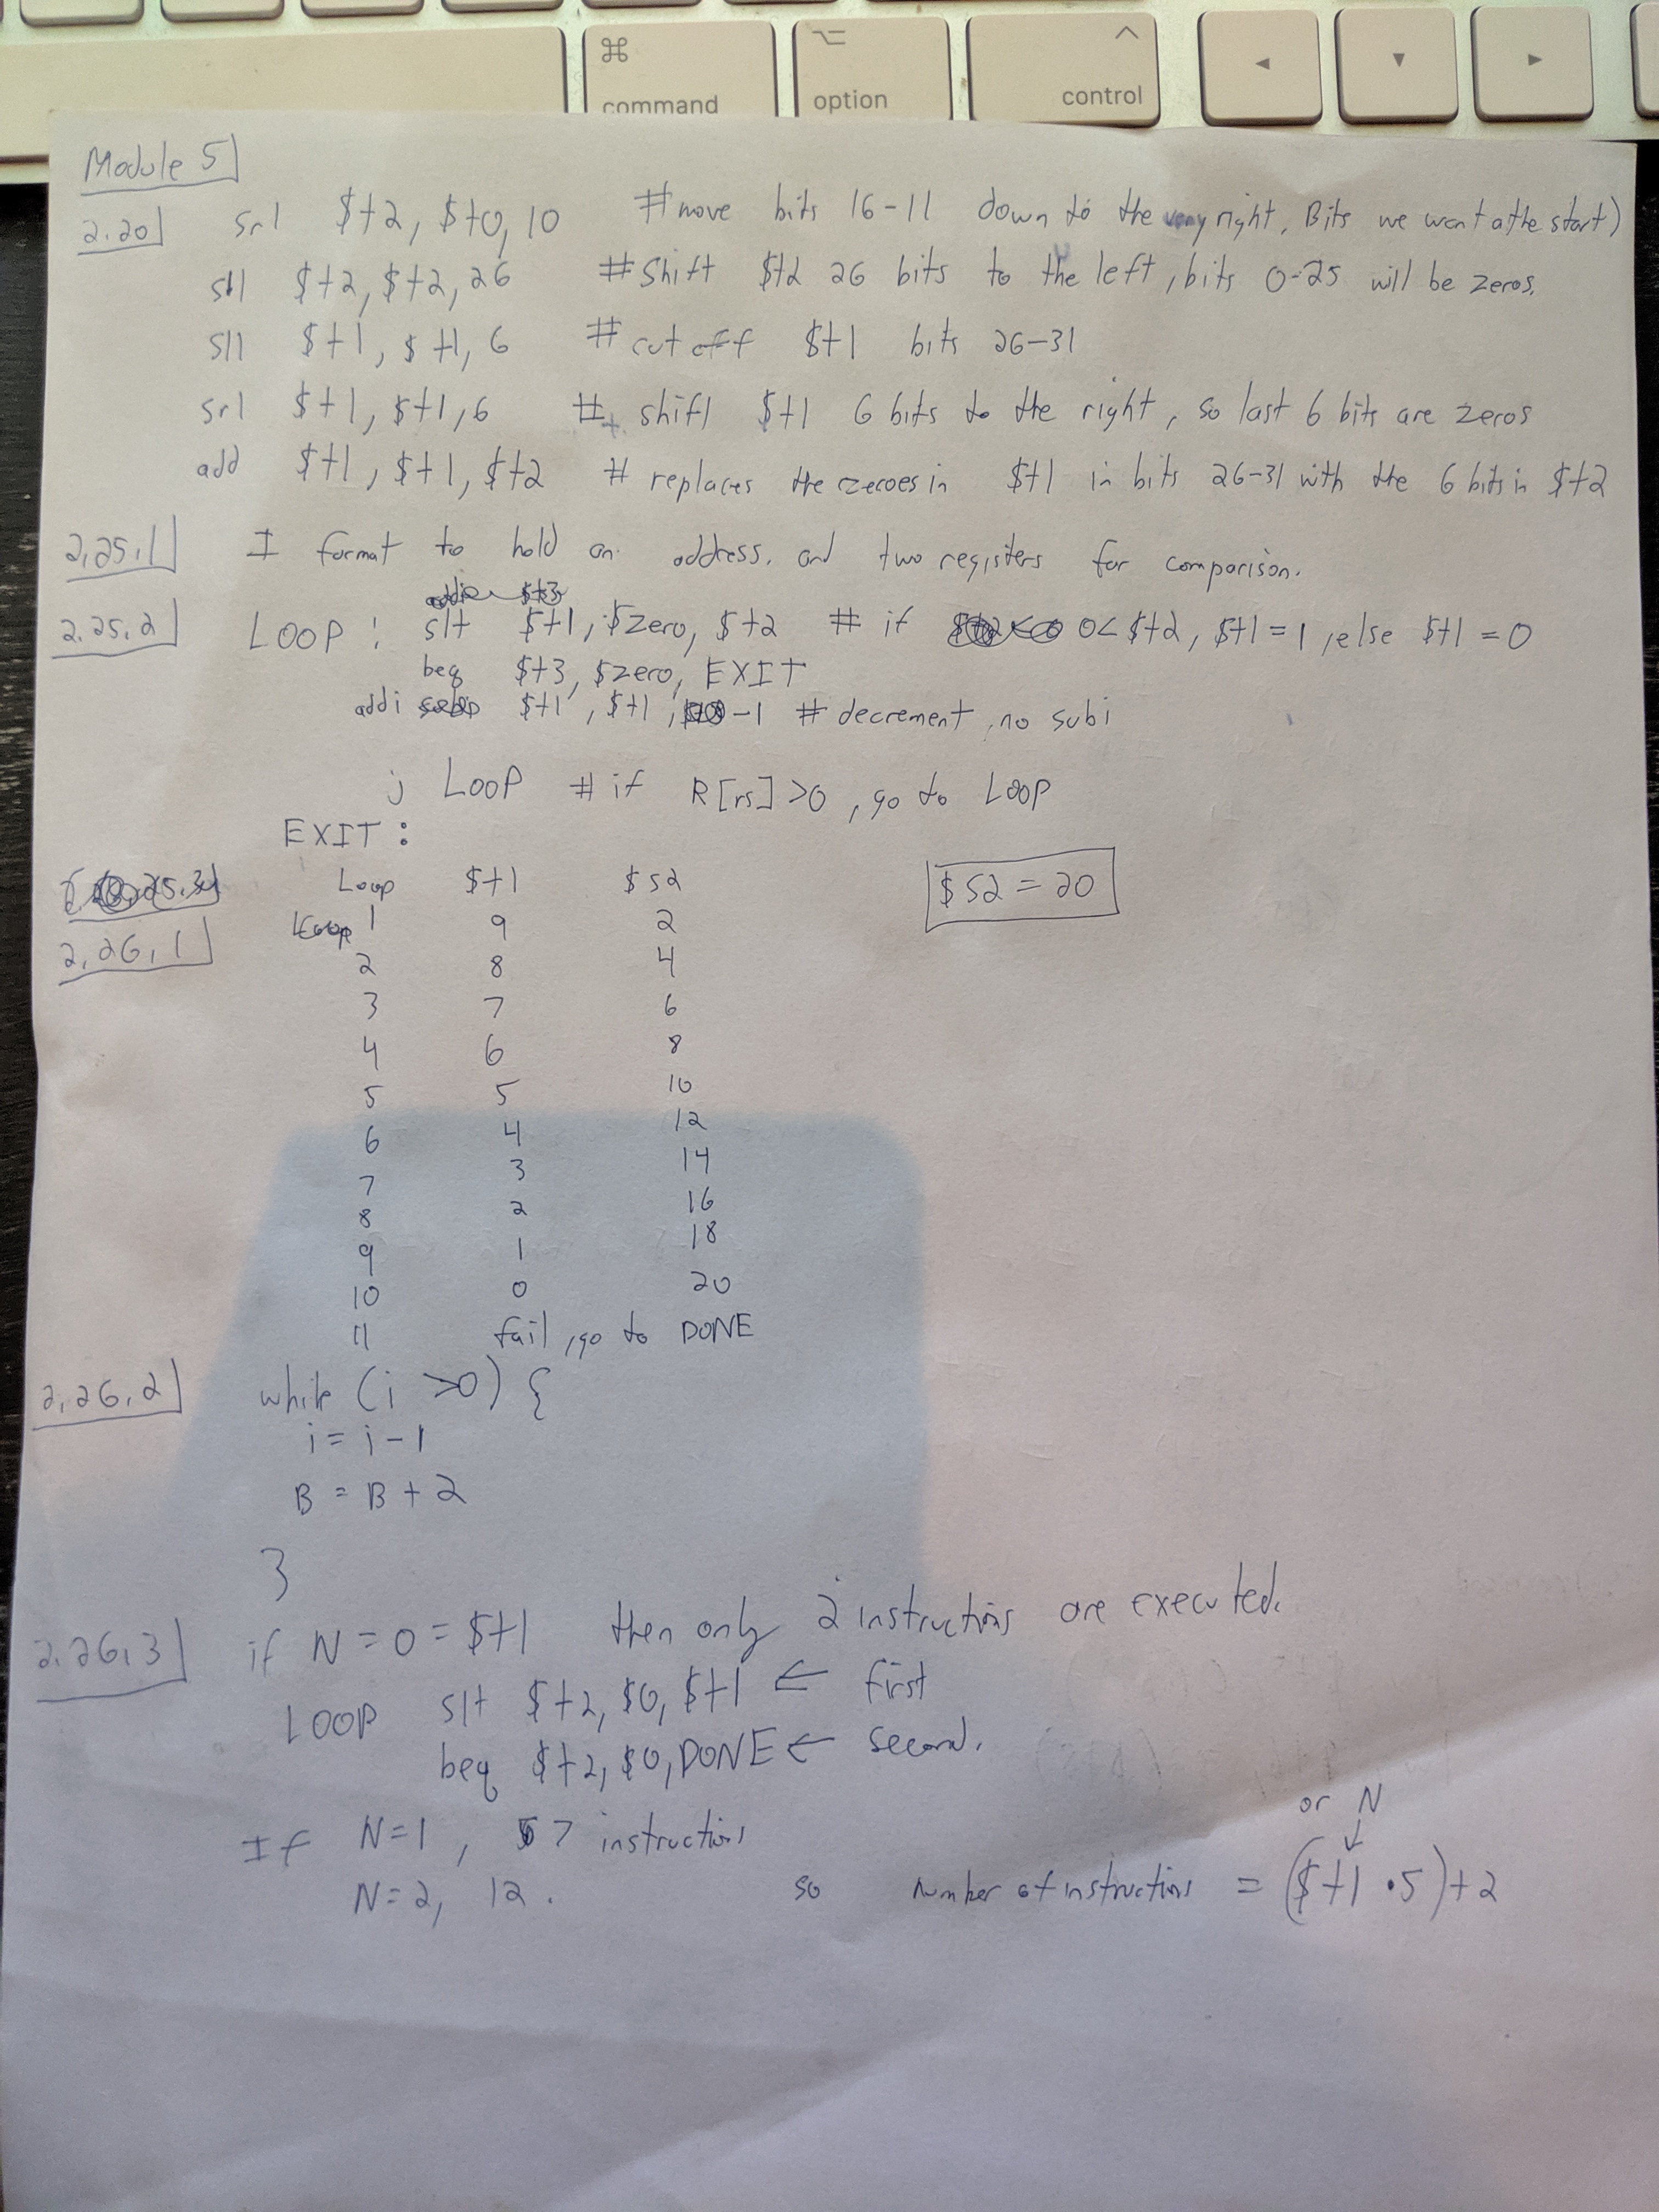 ⌘ ⌥ ^
command option control ◄ ▼ ►
Module 5
2.20 srl $t2, $t0, 10 #move bits 16-11 down to the very right, Bits we want at the start)
sll $t2, $t2, 26 #Shift $t2 26 bits to the left, bits 0-25 will be zeros.
sll $t1, $t1, 6 #cut off $t1 bits 26-31
srl $t1, $t1, 6 # shift $t1 6 bits to the right, so last 6 bits are zeros
add $t1, $t1, $t2 # replaces the zeroes in $t1 in bits 26-31 with the 6 bits in $t2
2.25.1 I format to hold an address. and two registers for comparison.
2.25.2 LOOP: slt $t1, $zero, $t2 # if 0< $t2, $t1 = 1, else $t1 = 0
beq $t3, $zero, EXIT
addi $t1, $t1, -1 # decrement, no subi
j LOOP # if R[rs] >0, go to LOOP
EXIT:
Loop $t1 $s2 $s2 = 20
2.26.1 1 9 2
2 8 4
3 7 6
4 6 8
5 5 10
6 4 12
7 3 14
8 2 16
9 1 18
10 0 20
11 fail, go to DONE
2.26.2 while (i >0) {
i = i - 1
B = B + 2
}
2.26.3 if N = 0 = $t1 then only 2 instructions are executed.
LOOP slt $t2, $0, $t1 ← first
beq $t2, $0, DONE ← second.
If N=1, 7 instructions
or N
↓
N=2, 12. so number of instructions = ($t1 · 5) + 2